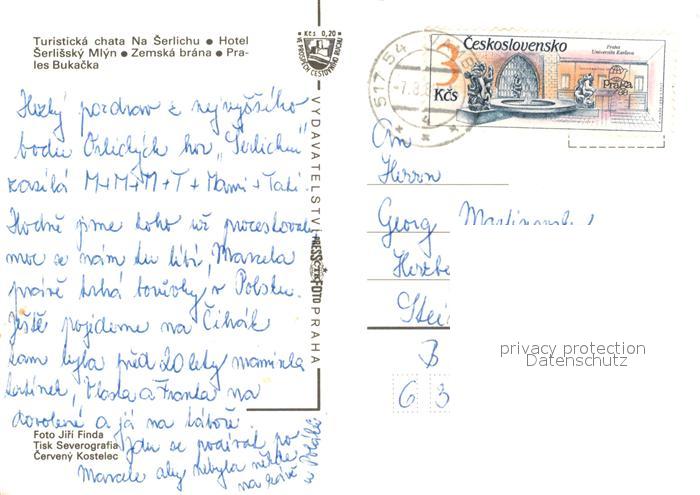 Turistická chata Na Šerlichu ● Hotel
Šerlišský Mlýn ● Zemská brána ● Pra-
les Bukačka
Kčs 0,20
VE PROSPĚCH CESTOVNÍHO RUCHU
Hezký pozdrav z nejvyššího
bodu Orlických hor „Šerlichu"
zasílá M+M+M+T + Mami + Tati.
Hodně jsme toho už procestovali
moc se nám tu líbí, Marcela
právě trhá borůvky v Polsku.
Ještě pojedeme na Čihák
tam byla před 20 lety maminka
Vlasta a Franta na
dovolené a já na táboře.
Jdu se podívat po
Marcele aby nebyla někde
VYDAVATELSTVÍ PRESSFOTO PRAHA
ČTK
Foto Jiří Finda
Tisk Severografia
Červený Kostelec
517 54
Československo
3
Kčs
Praha
Universita Karlova
Praga
88
An
Herrn
Georg
B
6 3
privacy protection
Datenschutz